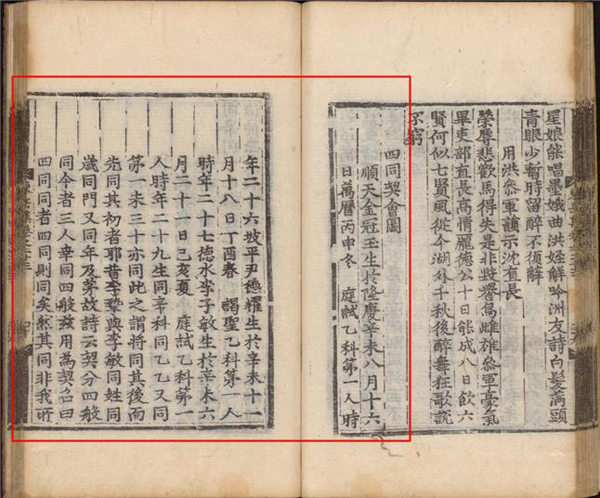 星娘能唱墨娥曲洪姪解吟洲友詩白髮滿頭
青眼少暫時留醉不須辭
用洪參軍韻示沈有長
榮辱悲歡馬得失是非毀譽爲雌雄參軍豪氣
畢吏部直長高情龐德公十日能成八日飮六
賢何似七賢風從今湖外千秋後醉舞狂歌說
不窮
四同契會圖
順天金冠玉生於隆慶辛未八月十六
日萬曆丙申冬 庭試乙科第一人時
年二十六坡平尹德耀生於辛未十一
月十八日丁酉春 謁聖乙科第一人
時年二十七德水李子敏生於辛未六
月二十一日己亥夏 庭試乙科第一
人時年二十九生同辛科同乙又同
第一未三十亦同此之謂將同其後而
先同其初者耶昔李摯與李敏同姓同
歲同門又同年及第故詩云契分四般
同今者三人幸同四般玆用爲契名曰
四同同者四同則同矣然其同非我所